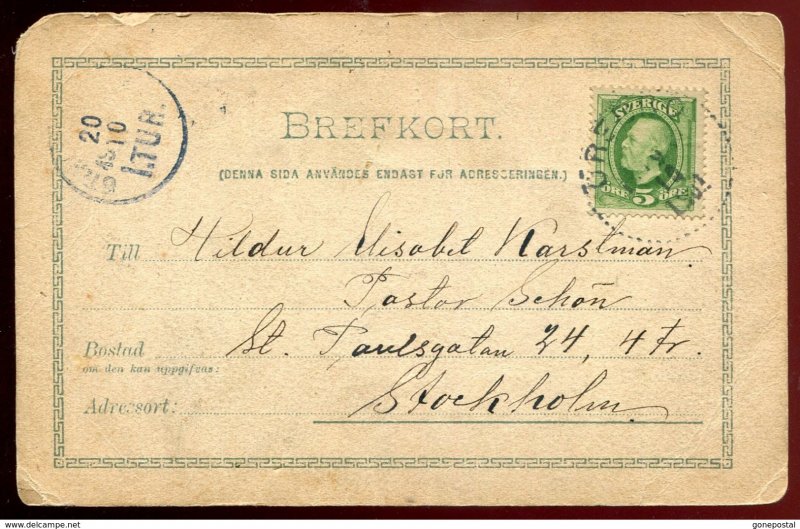 20
10
1.TUR.
BREFKORT.
(DENNA SIDA ANVÄNDES ENDAST FÖR ADRESSERINGEN.)
SVERIGE
ÖRE 5 ÖRE
Till Hildur Elisabet Karstman
Pastor Schön
Bostad St. Paulsgatan 24, 4 tr.
om den kan uppgifvas:
Adressort: Stockholm
gonepostal